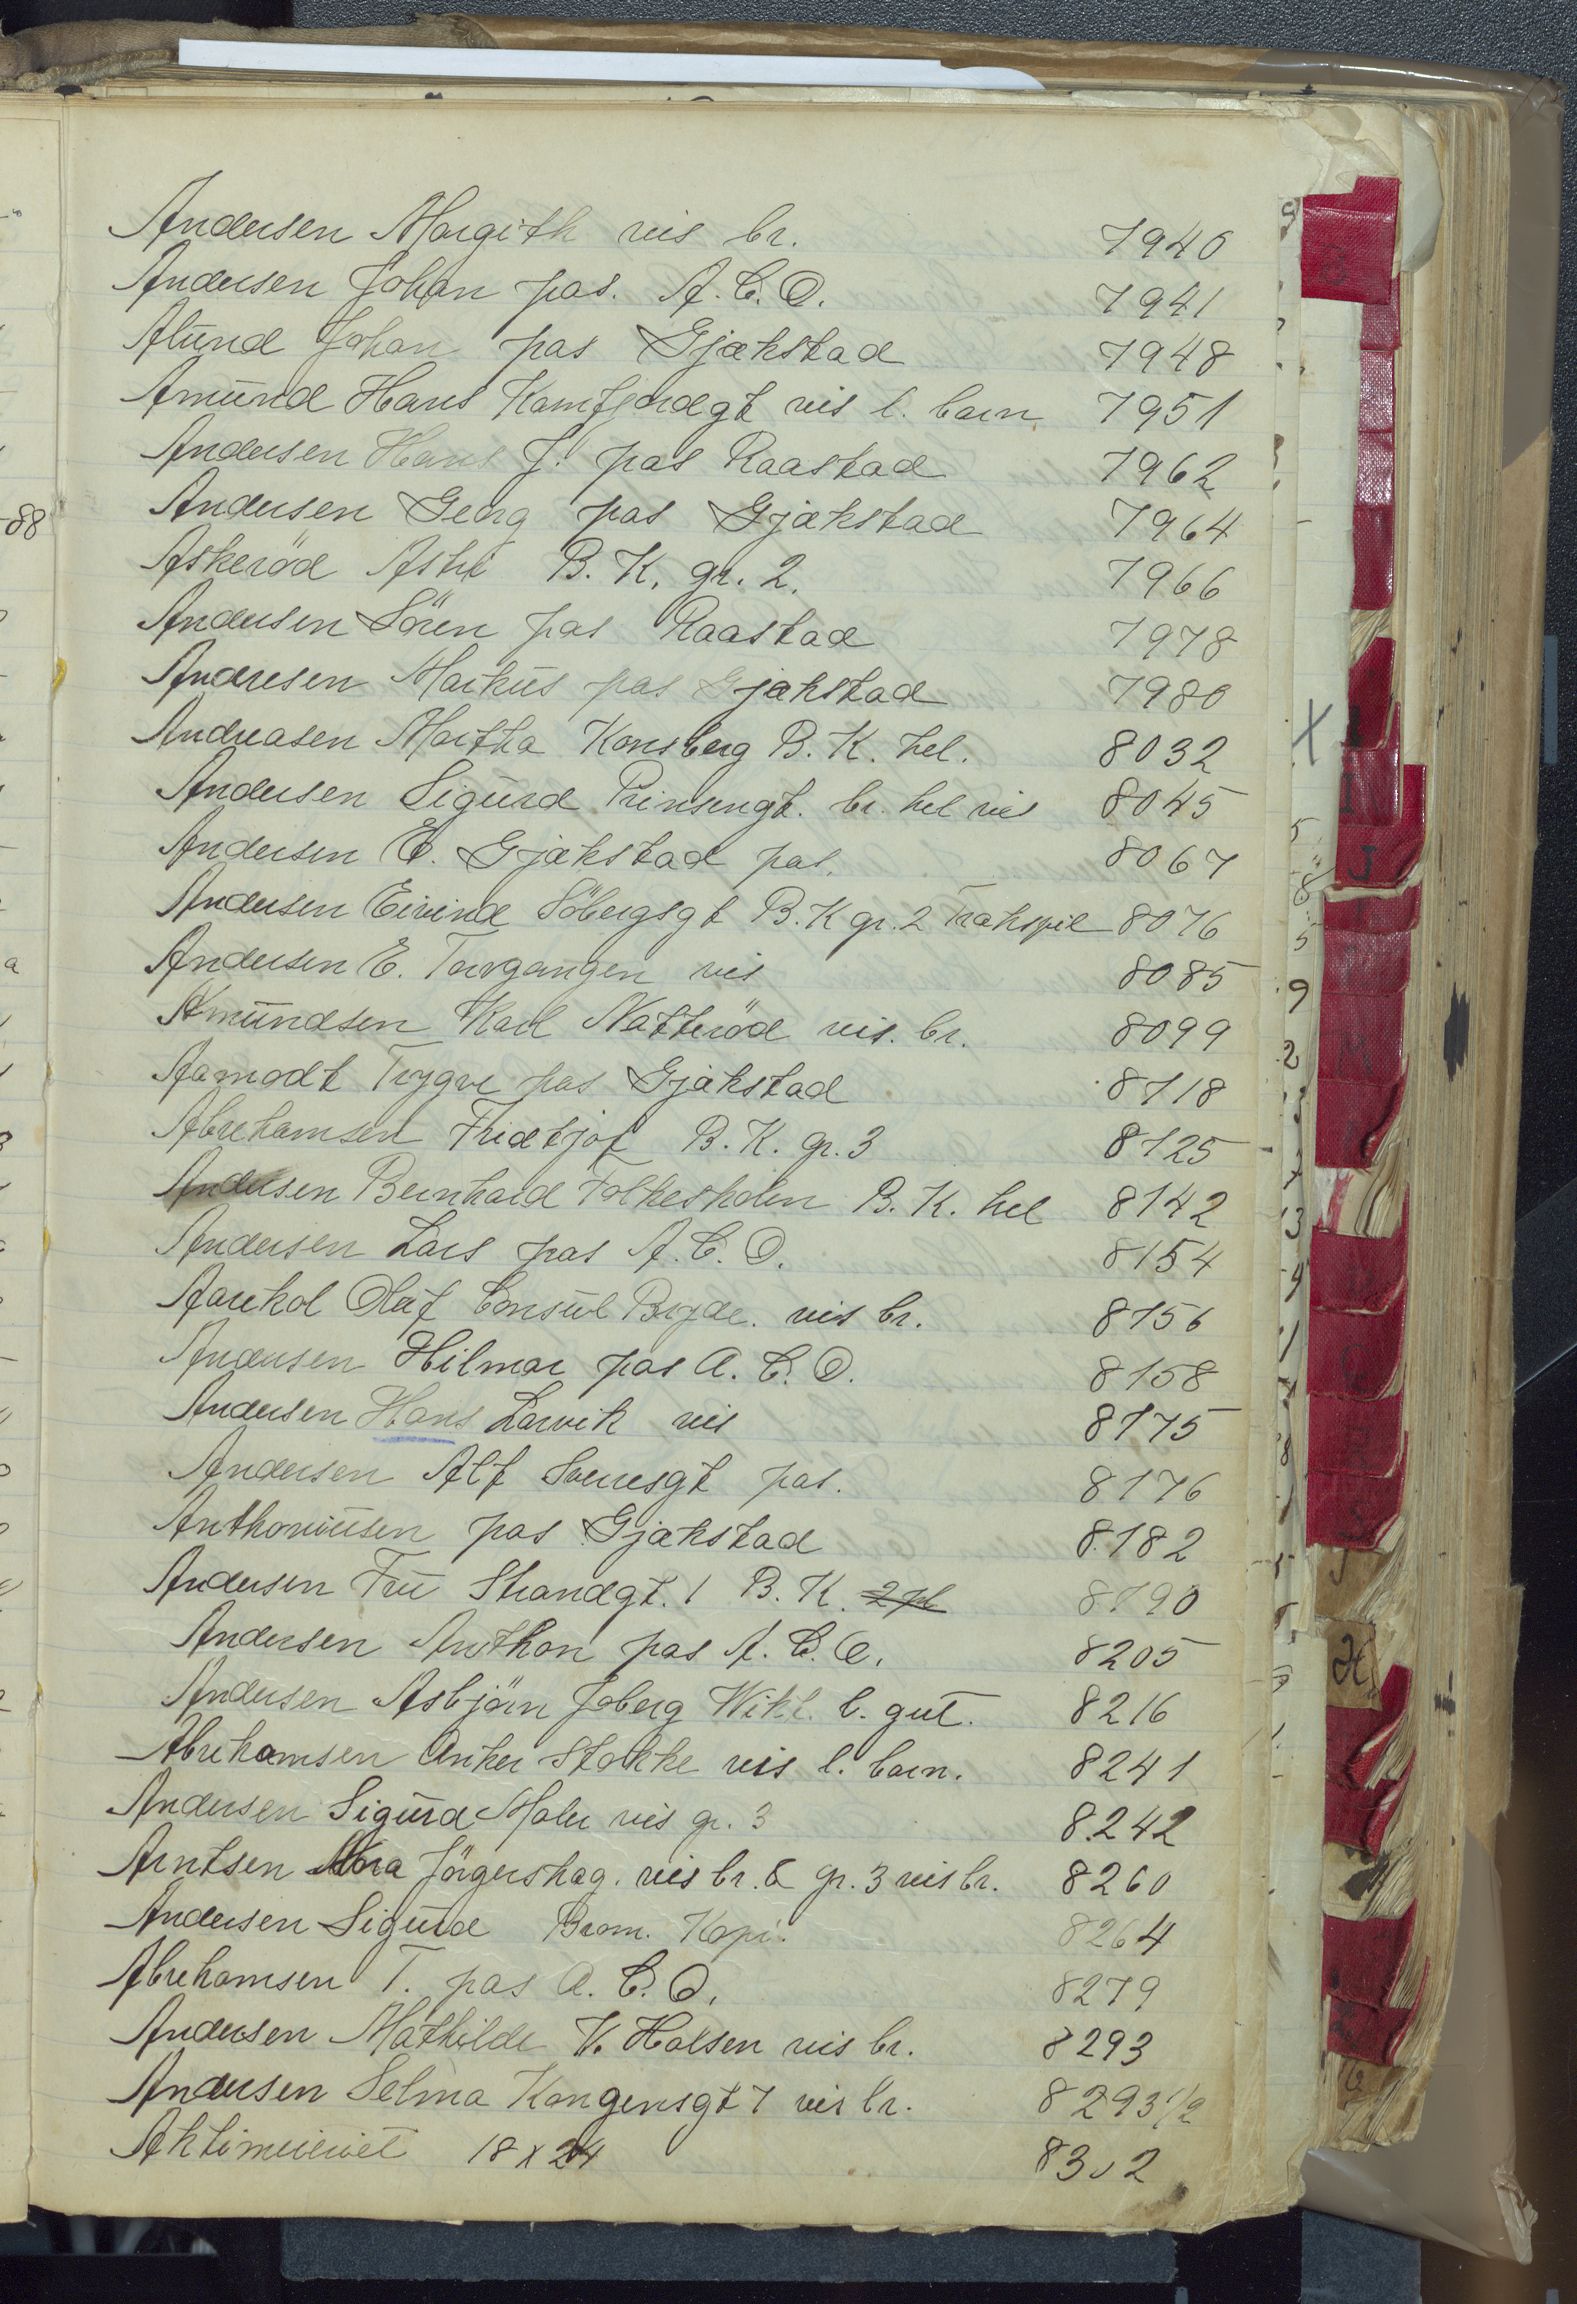 Andersen Margith vis br. 7940
Andersen Johan pas. A.C.O. 7941
Alund Johan pas Gjøkstad 7948
Amund Hans Kamfjordgt vis l. barn 7951
Andersen Hans J. pas Raastad 7962
Andersen Georg pas Gjøkstad 7964
Askeröd Astri B.K. gr. 2. 7966
Andersen Sören pas Raastad 7978
Andresen Markus pas Gjøkstad 7980
Andreasen Martha Konsberg B.K. hel. 8032
Andersen Sigurd Prinsengt. br. hel vis 8045
Andersen E. Gjøkstad pas. 8067
Andersen Eivind Söbergsgt B.K gr. 2 8076
Andersen E. Torgangen vis 8085
Amundsen Karl Natteröd vis. br. 8099
Aamodt Trygve pas Gjøkstad 8118
Abrehamsen Fridtjof B.K. gr. 3 8125
Andersen Bernhard Folkeskolen B.K. hel 8142
Andersen Lars pas A.C.O. 8154
Aarekol Olaf Consul Bryde. vis br. 8156
Andersen Hilmar pas A.C.O. 8158
Andersen Hans Larvik vis 8175
Andersen Alf Sverresgt pas. 8176
Anthoniusen pas Gjøkstad 8182
Andersen Fru Strandgt. 1 B.K. 2 pl 8190
Andersen Anthon pas A.C.O. 8205
Andersen Asbjörn Joberg Wikt. l. gut. 8216
Abrehamsen Anker Stokke vis l. barn. 8241
Andersen Sigurd Maler vis gr. 3 8242
Arntsen Nora Jörgershag. vis br. & gr. 3 vis br. 8260
Andersen Sigurd Brom. Kopi. 8264
Abrehamsen T. pas A.C.O. 8279
Andersen Mathilde V. Halsen vis br. 8293
Andersen Selma Kongensgt 7 vis br. 8293 1/2
18 x 24 8302